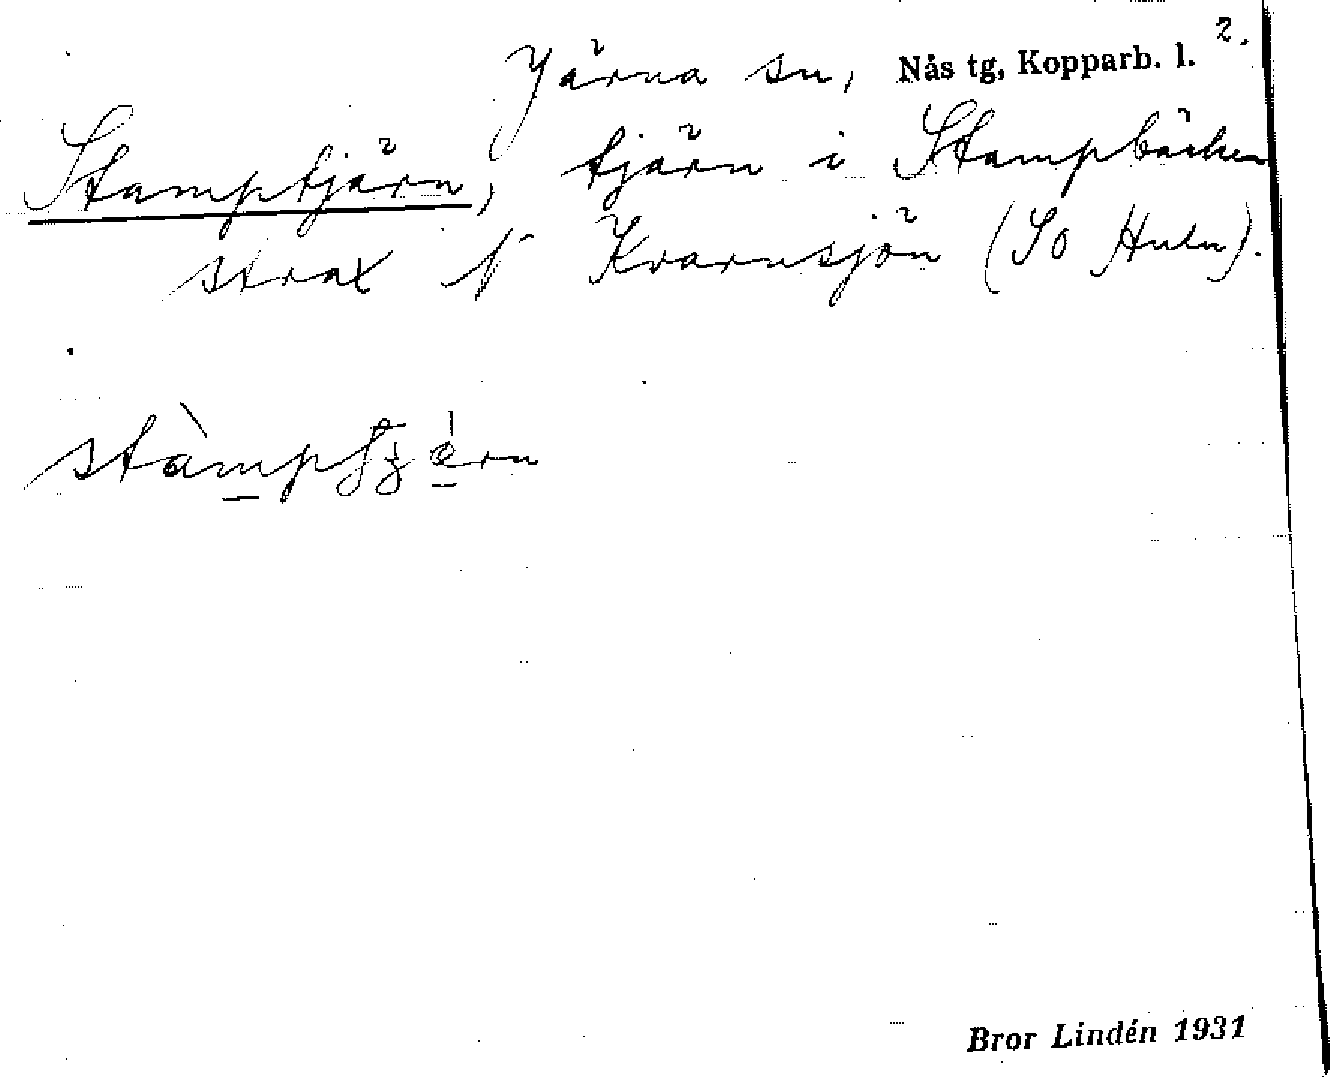 Järna sn, Nås tg, Kopparb. l. 2.
Stamptjärn, tjärn i Stampbäcken
strax N Kvarnsjön (SO Huln).
Bror Lindén 1931